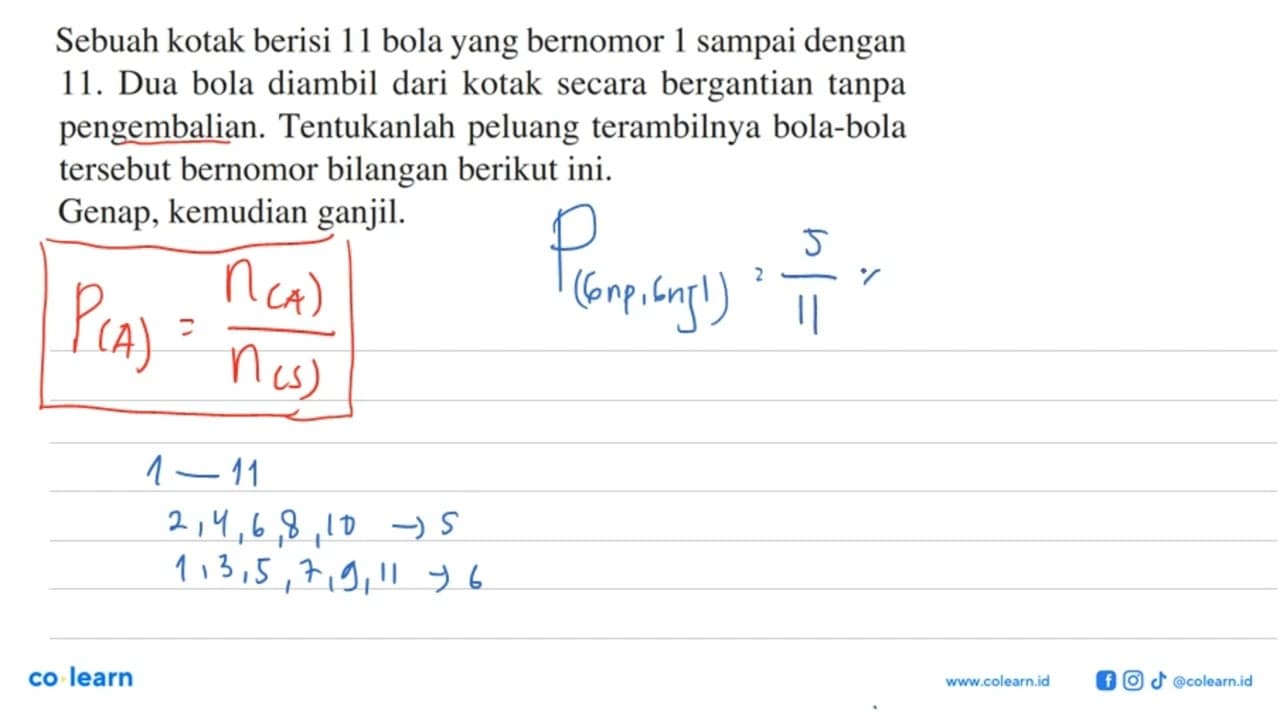 Sebuah kotak berisi 11 bola yang bernomor 1 sampai dengan
11. Dua bola diambil dari kotak secara bergantian tanpa
pengembalian. Tentukanlah peluang terambilnya bola-bola
tersebut bernomor bilangan berikut ini.
Genap, kemudian ganjil.
P(A) = n(A) / n(S)
P(Gnp, Gnjl) = 5/11 ×
1 — 11
2, 4, 6, 8, 10 → 5
1, 3, 5, 7, 9, 11 → 6
co learn
www.colearn.id
@colearn.id